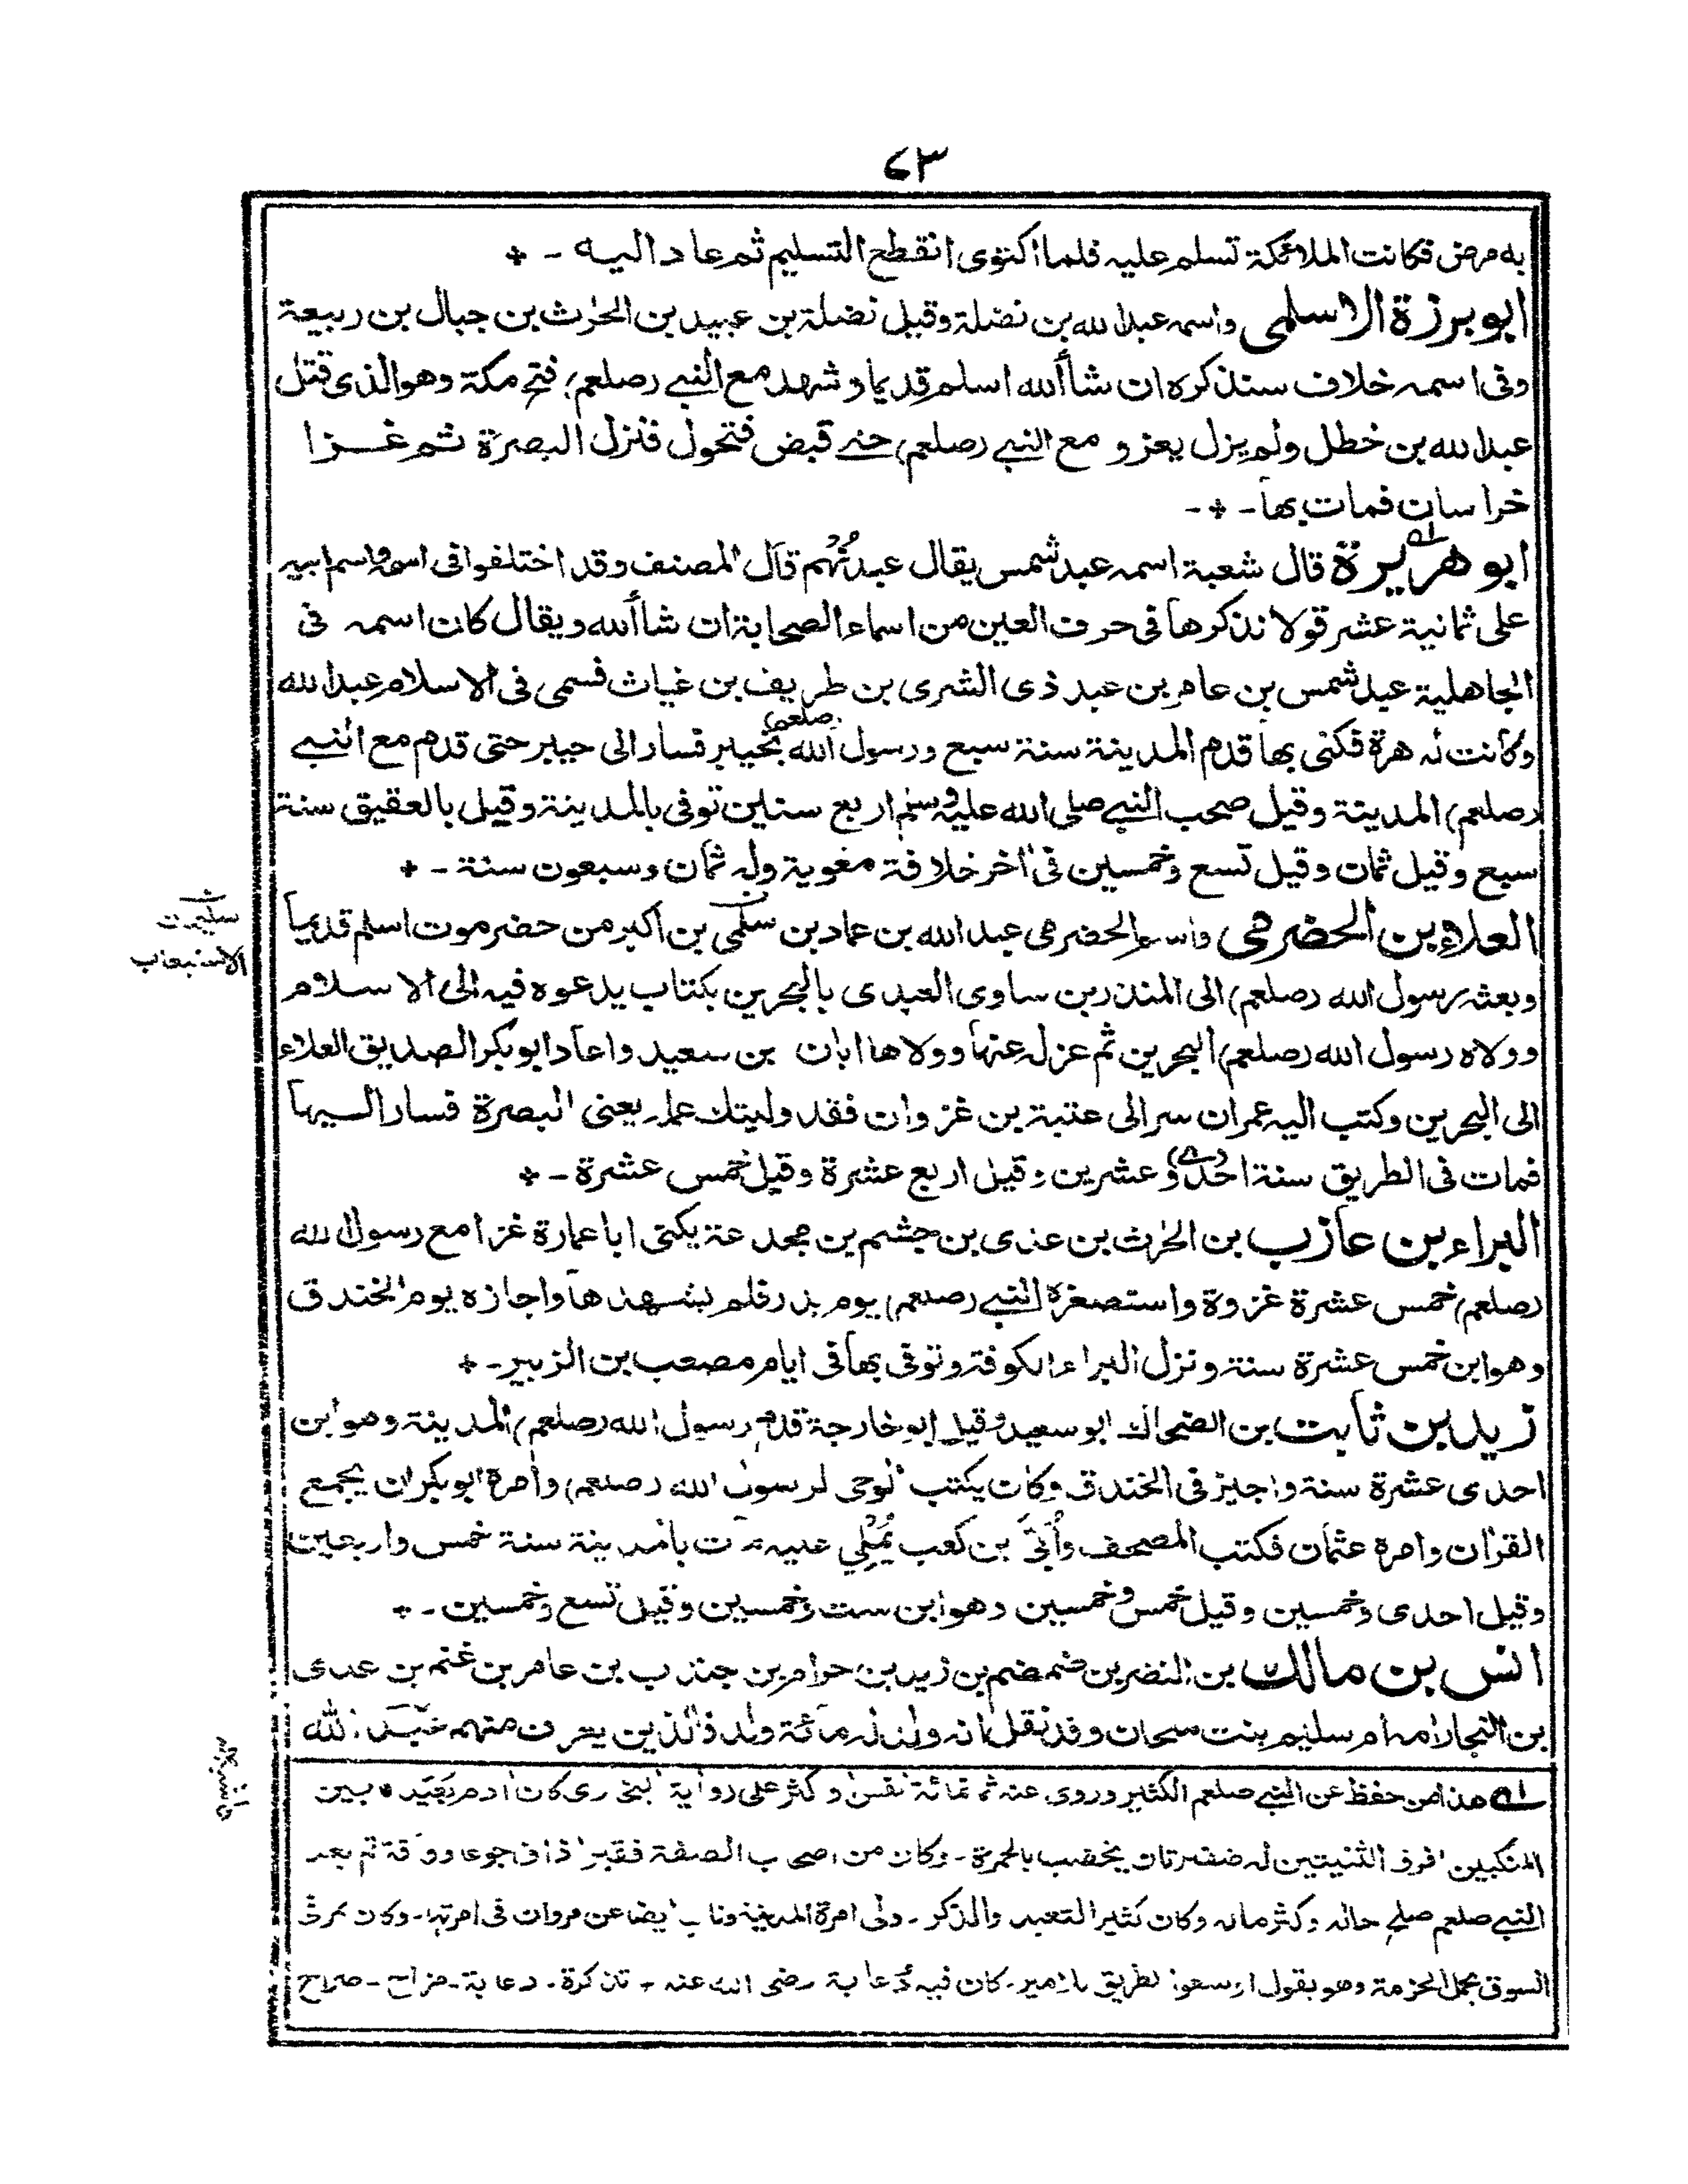 ٦٣
به مرض فكانت الملائكة تسلم عليه فلما اكتوى انقطع التسليم ثم عاد اليه - *
ابو برزة الاسلمى واسمه عبد الله بن نضلة وقيل نضلة بن عبيد بن الحرث بن جبال بن ربيعة
وفى اسمه خلاف سنذكره ان شاء الله اسلم قديما و شهد مع النبى (صلعم) فتح مكة وهو الذى قتل
عبد الله بن خطل ولم يزل يغزو مع النبى (صلعم) حتى قبض فتحول فنزل البصرة ثم غزا
خراسان فمات بها - * -
ابو هريرة قال شعبة اسمه عبد شمس يقال عبد نُهم قال المصنف وقد اختلفوا فى اسمه واسم ابيه
على ثمانية عشر قولا نذكرها فى حرف العين من اسماء الصحابة ان شاء الله ويقال كان اسمه فى
الجاهلية عبد شمس بن عامر بن عبد ذى الشرى بن طريف بن غياث فسمى فى الاسلام عبد الله
وكانت له هرة فكنى بها قدم المدينة سنة سبع ورسول الله (صلعم) بخيبر فسار الى خيبر حتى قدم مع النبى
(صلعم) المدينة وقيل صحب النبى صلى الله عليه وسلم اربع سنين توفى بالمدينة وقيل بالعقيق سنة
سبع وقيل ثمان وقيل تسع وخمسين فى اخر خلافة معوية وله ثمان وسبعون سنة - *
العلاء بن الحضرمى واسم الحضرمى عبد الله بن عماد بن سلمى بن اكبر من حضرموت اسلم قديما
الاستيعاب
وبعثه رسول الله (صلعم) الى المنذر بن ساوى العبدى بالبحرين بكتاب يدعوه فيه الى الاسلام
وولاه رسول الله (صلعم) البحرين ثم عزله عنها وولاها ابان بن سعيد واعاد ابو بكر الصديق العلاء
الى البحرين وكتب اليه عمر ان سر الى عتبة بن غزوان فقد وليتك عمله يعنى البصرة فسار اليها
فمات فى الطريق سنة احدى وعشرين وقيل اربع عشرة وقيل خمس عشرة - *
البراء بن عازب بن الحرث بن عدى بن جشم بن مجدعة يكنى ابا عمارة غزا مع رسول الله
(صلعم) خمس عشرة غزوة واستصغره النبى (صلعم) يوم بدر فلم يشهدها واجازه يوم الخندق
وهو ابن خمس عشرة سنة ونزل البراء الكوفة وتوفى بها فى ايام مصعب بن الزبير - *
زيد بن ثابت بن الضحاك ابو سعيد وقيل ابو خارجة قدم رسول الله (صلعم) المدينة وهو ابن
احدى عشرة سنة واجيز فى الخندق وكان يكتب الوحى لرسول الله (صلعم) وامره ابو بكر ان يجمع
القران وامره عثمان فكتب المصحف وأُبَىّ بن كعب يُمْلِي عليه مات بالمدينة سنة خمس واربعين
وقيل احدى وخمسين وقيل خمس وخمسين وهو ابن ست وخمسين وقيل تسع وخمسين - *
انس بن مالك بن النضر بن ضمضم بن زيد بن حرام بن جندب بن عامر بن غنم بن عدى
بن النجار امه ام سليم بنت ملحان وقد نقل انه ولد له مائة ولد فالذين يعرف منهم عبد الله
له هذا من حفظ عن النبى صلعم الكثير وروى عنه ثمانمائة نفس و كثر على رواية البخارى كان ادم بعيد ما بين
المنكبين افرق الثنيتين له ضفيرتان يخضب بالحمرة - وكان من اصحاب الصفة فقيرا ذاق جوعا وفاقة ثم بعد
النبى صلعم صلح حاله وكثر ماله وكان كثير التعبد والذكر - ولى امرة المدينة وناب ايضا عن مروان فى امرتها - وكان يمر فى
السوق يحمل الحزمة وهو يقول اوسعوا الطريق للامير - كان فيه دُعابة رضى الله عنه + تذكرة - دعابة - مزاح - صراح